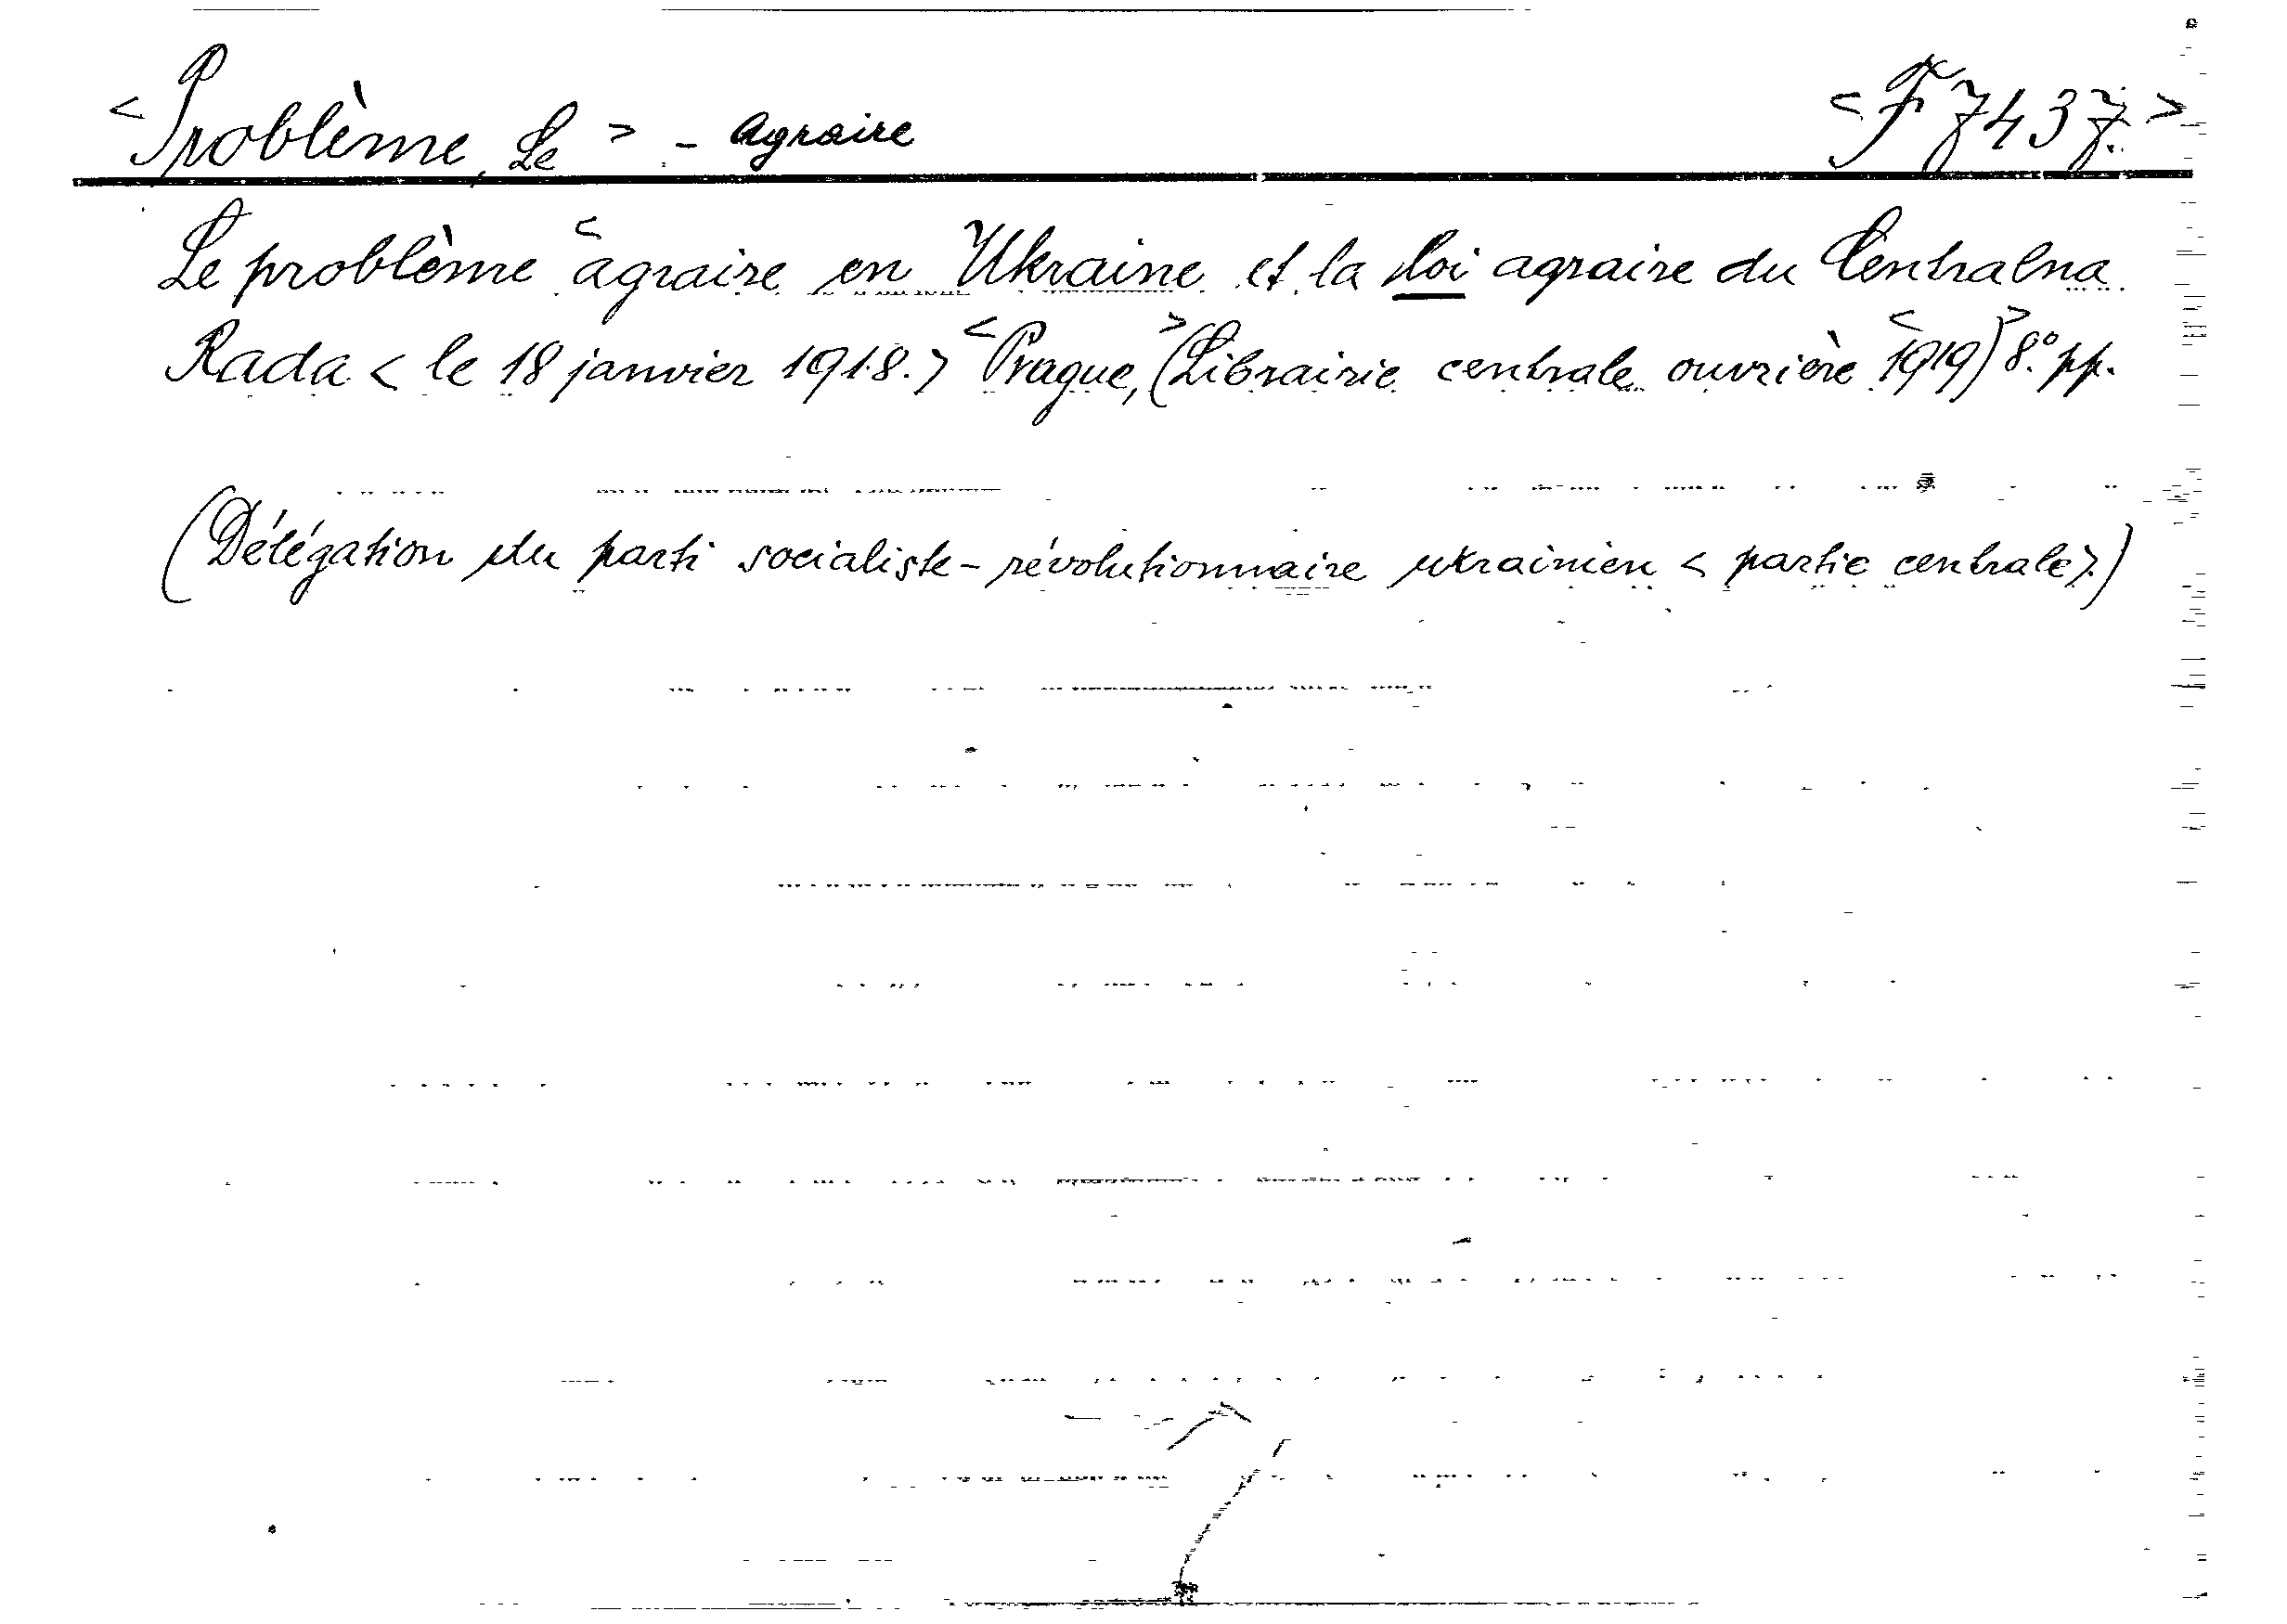 <Problème, Le> - agraire <F 7437.>
Le problème <agraire en Ukraine et la loi agraire du Centralna
Rada <le 18 janvier 1918.> <Prague,> (Librairie centrale ouvrière <1919)> 8°. pp.
(Délégation du parti socialiste-révolutionnaire ukrainien <partie centrale>.)